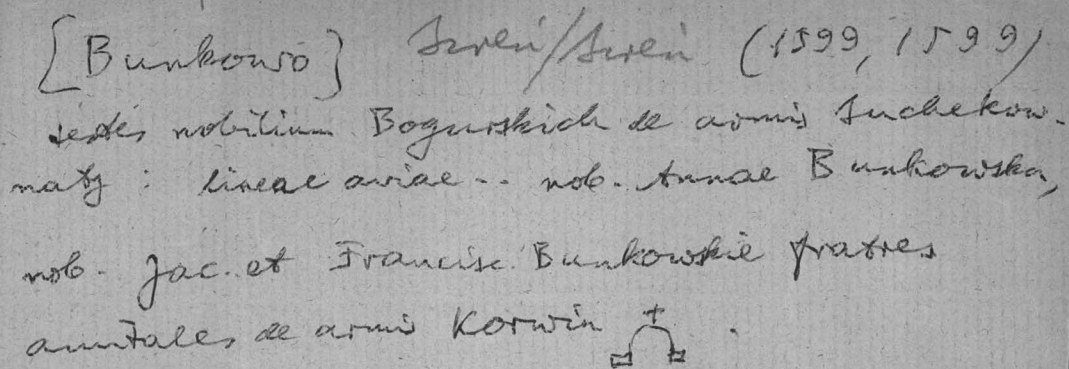 [Bunkowo] (1599, 1599)
testes nobilium Bogurskich de armis Suchekow-
naty : lineae aviae .. nob. Annae Bunkowska,
nob. Jac. et Francisc. Bunkowskie fratres
amitales de armis Korwin .